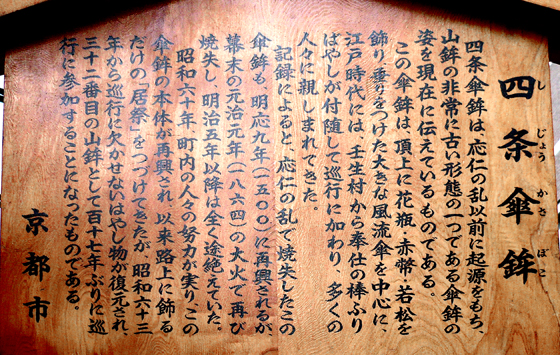 四条傘鉾
し じょう かさ ぼこ
四条傘鉾は、応仁の乱以前に起源をもち、
山鉾の非常に古い形態の一つである傘鉾の
姿を現在に伝えているものである。
この傘鉾は、頂上に花瓶、赤幣、若松を
飾り、垂りをつけた大きな風流傘を中心に、
江戸時代には、壬生村から奉仕の棒ふり
はやしが付随して巡行に加わり、多くの
人々に親しまれてきた。
記録によると、応仁の乱で焼失したこの
傘鉾も、明応九年(一五〇〇)に再興されるが
幕末の元治元年(一八六四)の大火で再び
焼失し、明治五年以降は全く途絶えていた。
昭和六十年、町内の人々の努力が実り、この
傘鉾の本体が再興され、以来路上に飾る
だけの「居祭」をつづけてきたが、昭和六十三
年から巡行に欠かせないはやし物が復元され、
三十二番目の山鉾として百十七年ぶりに巡
行に参加することになったものである。
京都市